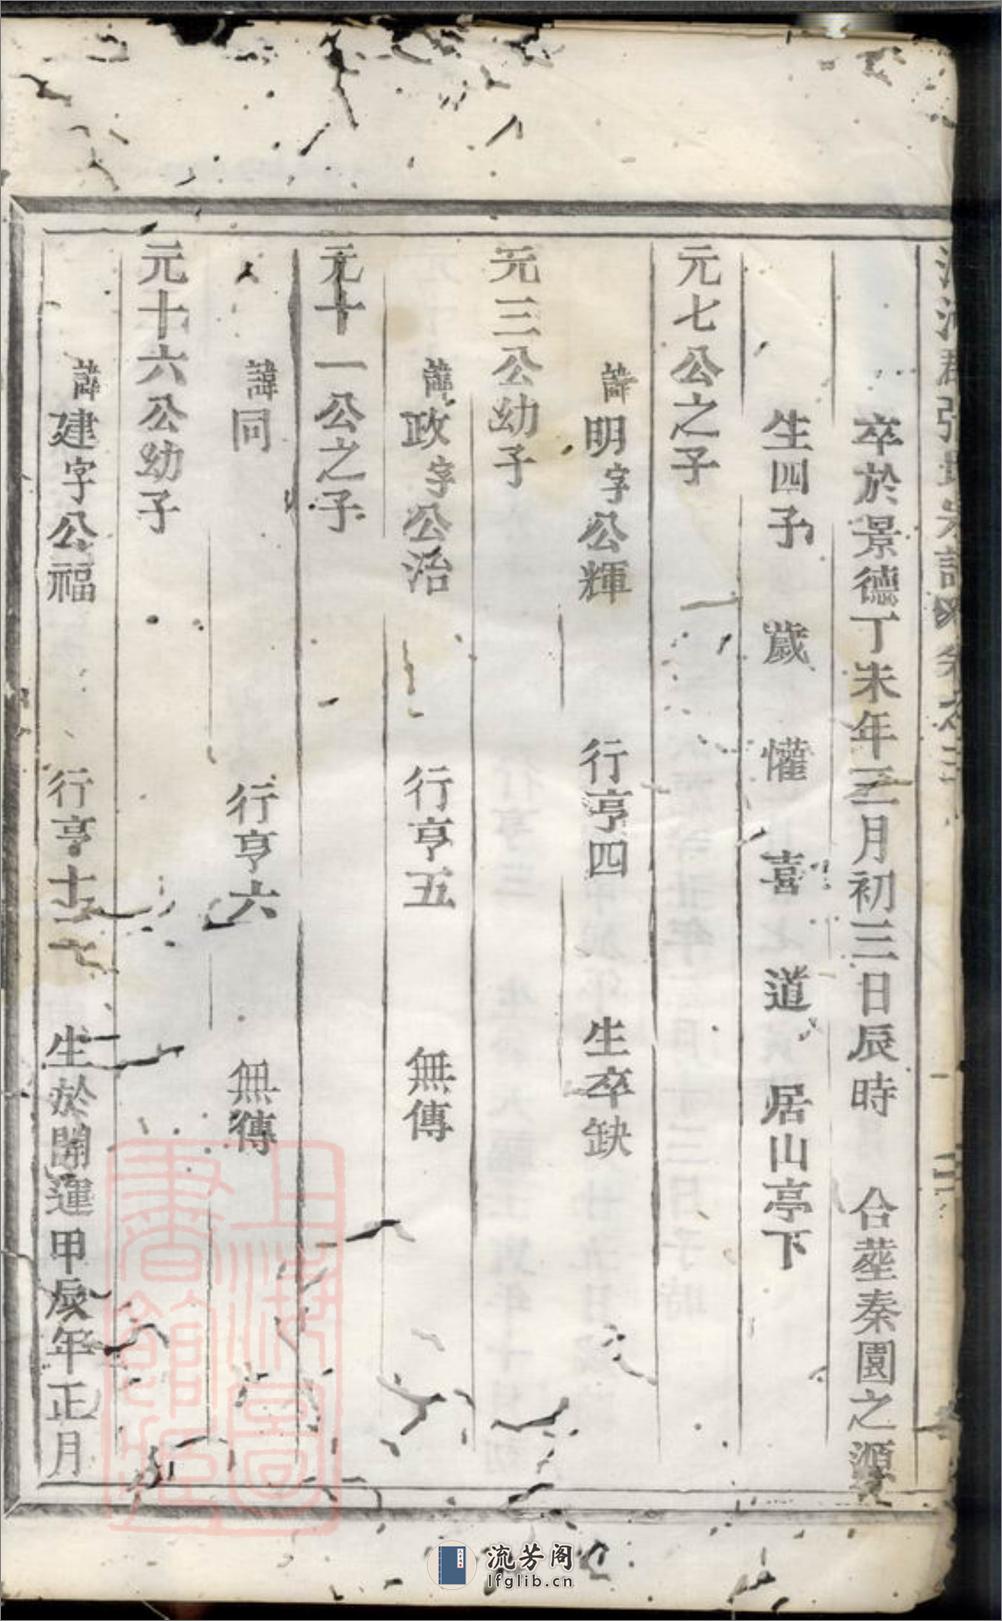 卒於景德丁未年三月初三日辰時 合塟秦園之源
生四子 歲 懽 喜 道 居山亭下
元七公之子
諱明字公輝 行亨四 生卒缺
元三公幼子
諱政字公治 行亨五 無傳
元十一公之子
諱同 行亨六 無傳
元十六公幼子
諱建字公福 行亨十 生於開運甲辰年正月
上海圖書館藏
流芳阁
lfglib.cn